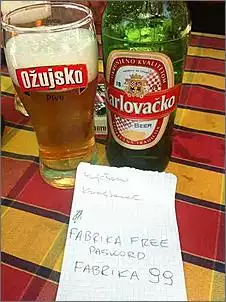 Ožujsko
Pivo
arlovačko
BEER
FABRIKA FREE
PASKORD
FABRIKA 99